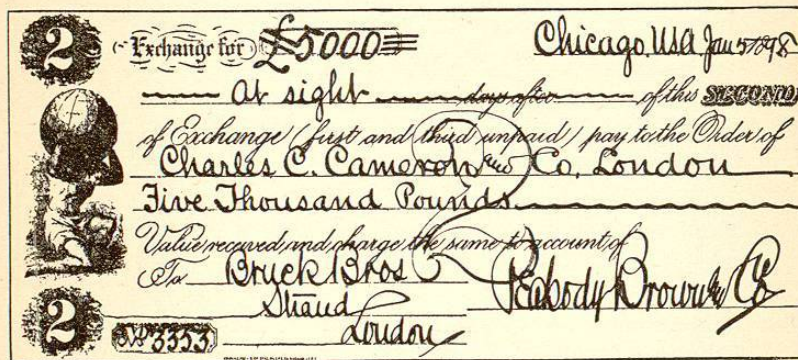 2 Exchange for £5000 Chicago, USA Jan 5th 98
At sight days after of this SECOND
of Exchange (first and third unpaid) pay to the Order of
Charles C. Cameron and Co. London
Five Thousand Pounds
Value received and charge the same to account of
To Bruck Bros Peabody Brown & Co
Strand
2 No 3353 London